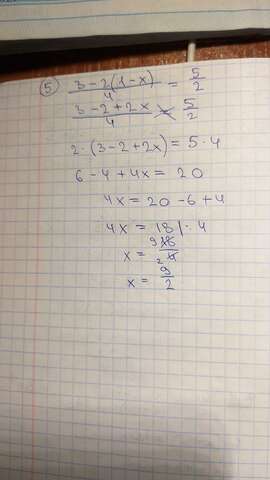 5 3-2(1-x)/4 = 5/2
3-2+2x/4 = 5/2
2·(3-2+2x) = 5·4
6-4+4x = 20
4x = 20-6+4
4x = 18 /·4
x = 9 18/2 4
x = 9/2